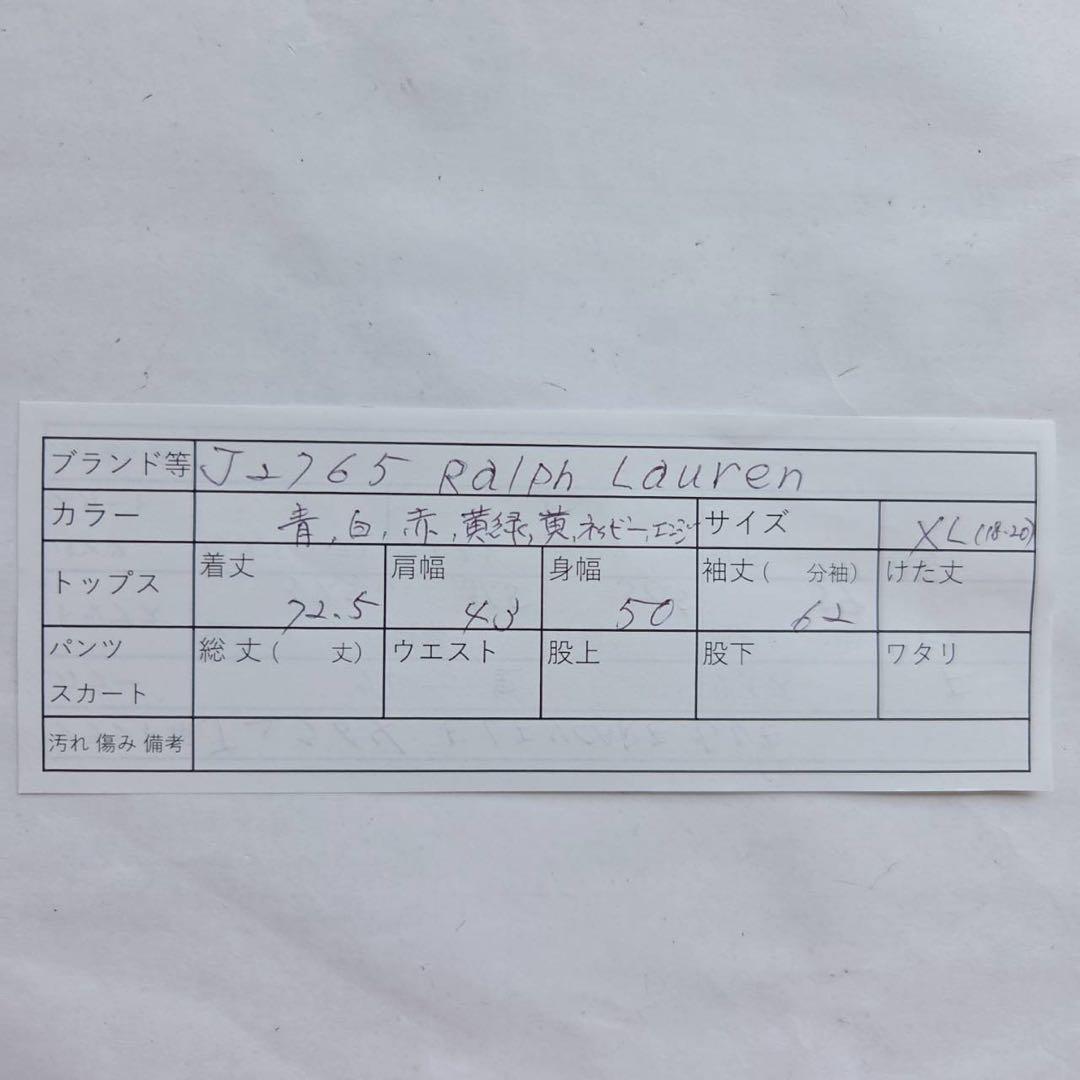 ブランド等 J2765 Ralph Lauren
カラー 青,白,赤,黄緑,黄,ネービー,エンジ サイズ XL(18-20)
トップス 着丈 72.5 肩幅 43 身幅 50 袖丈( 分袖) 62 けた丈
パンツ スカート 総丈( 丈) ウエスト 股上 股下 ワタリ
汚れ 傷み 備考